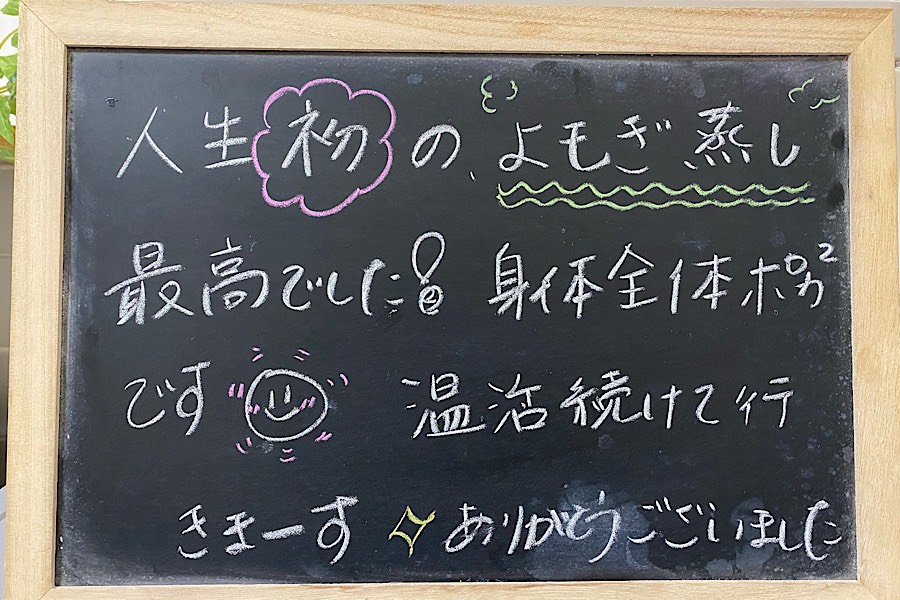 人生初のよもぎ蒸し
最高でした! 身体全体ポカ²
です 温活続けて行
きまーす ありがとうございました